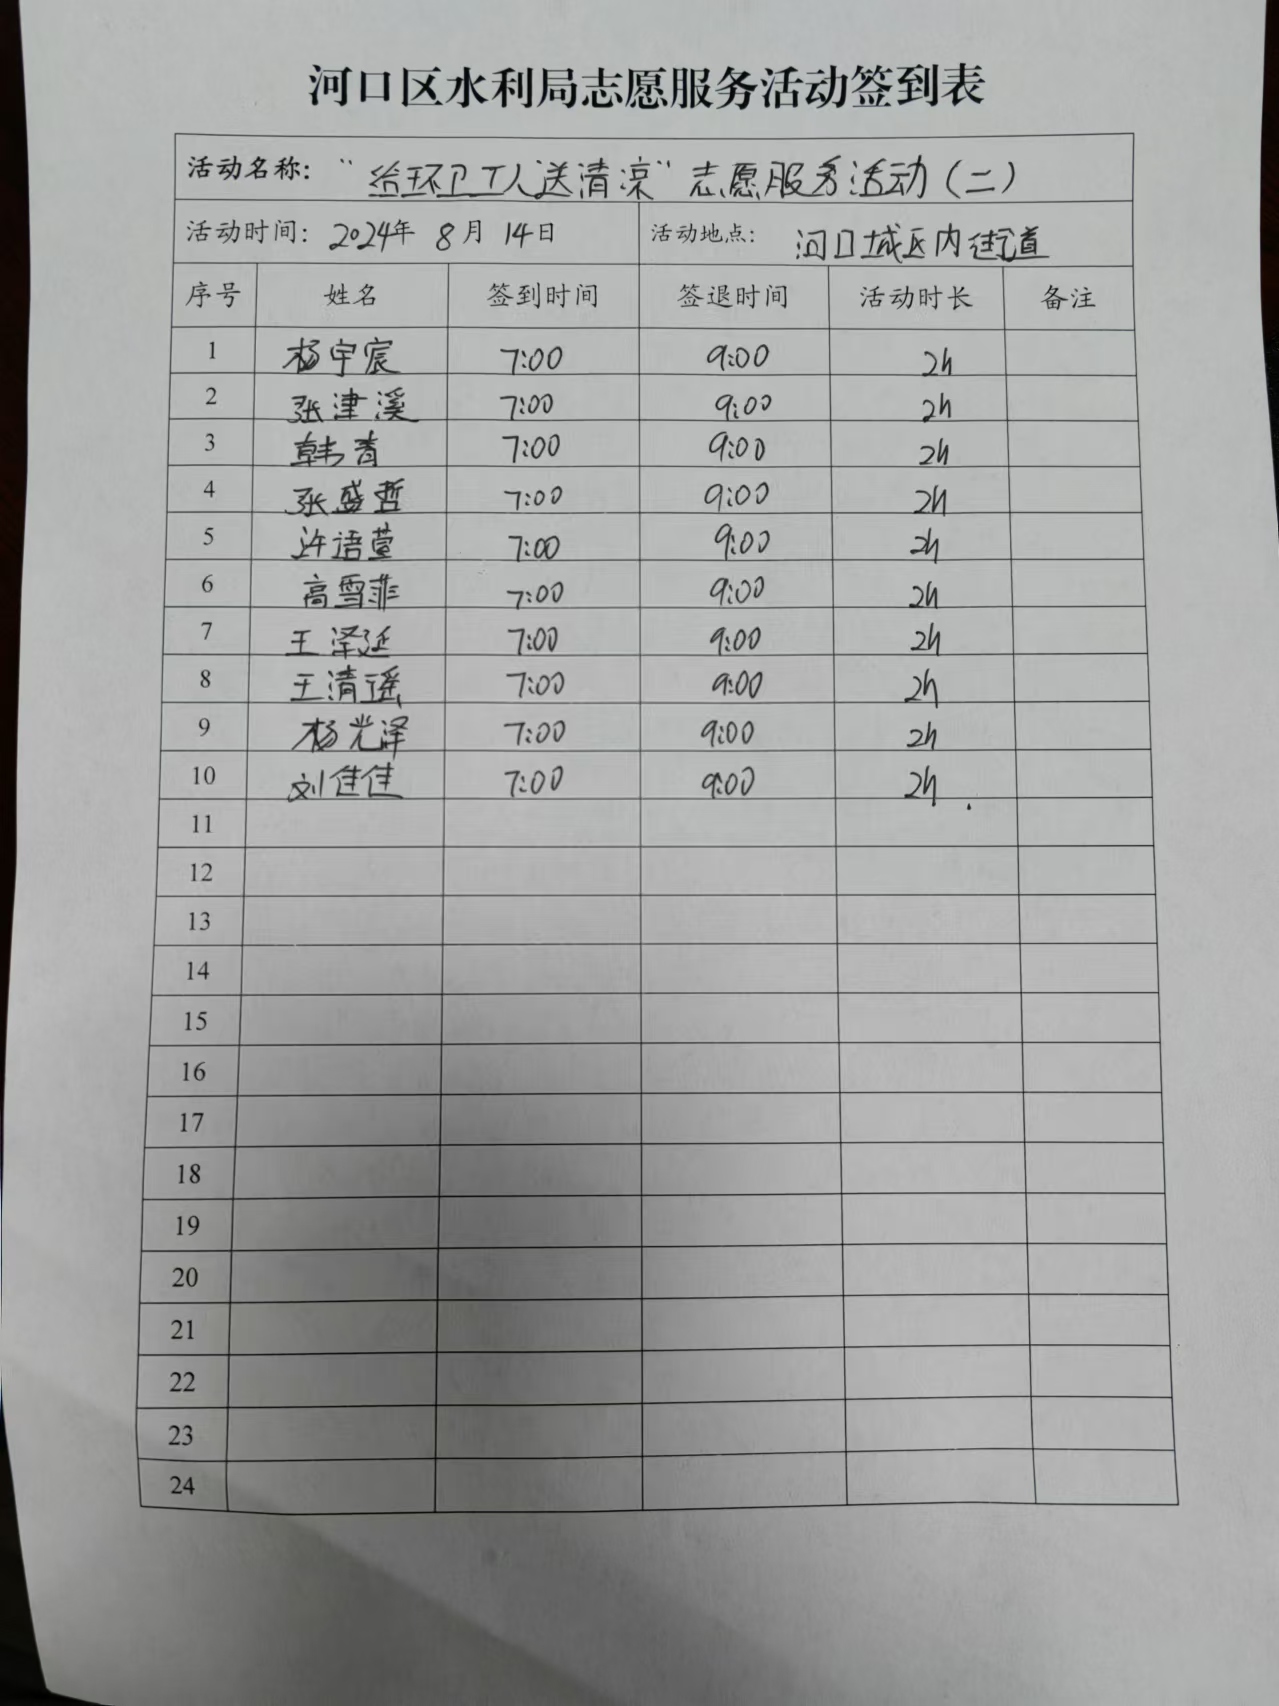 河口区水利局志愿服务活动签到表
活动名称：“给环卫工人送清凉”志愿服务活动（二）
活动时间：2024年 8月 14日 活动地点：河口城区内街道
序号 姓名 签到时间 签退时间 活动时长 备注
1 杨宇宸 7:00 9:00 2h
2 张津溪 7:00 9:00 2h
3 韩青 7:00 9:00 2h
4 张盛哲 7:00 9:00 2h
5 许语萱 7:00 9:00 2h
6 高雪菲 7:00 9:00 2h
7 王泽延 7:00 9:00 2h
8 王清瑶 7:00 9:00 2h
9 杨光泽 7:00 9:00 2h
10 刘佳佳 7:00 9:00 2h
11
12
13
14
15
16
17
18
19
20
21
22
23
24